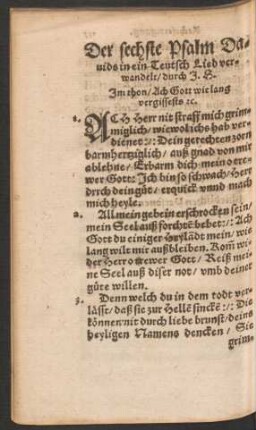 Der sechste Psalm Da-
uids in ein Teutsch Lied ver-
wandelt/ durch J. S.
Im thon/ Ach Gott wie lang
vergissests ꝛc.
1. ACH Herr nit straff mich grim-
miglich/ wiewol ichs hab ver-
dienet:/: Dein gerechten zorn
barmhertziglich/ auß gnad von mir
ablehne/ Erbarm dich mein o ere-
wer Gott: Ich bin so schwach/ Herr
durch dein güt/ erquick vnnd mach
mich heyle.
2. All mein gebein erschrocken sein/
mein Seel auß forchtē bebet:/: Ach
Gott du einiger Heyland mein/ wie
lang wilt mir außbleiben. Kom̄ wi-
der Herr o trewer Gott/ Reiß mei-
ne Seel auß diser not/ vmb deiner
güte willen.
3. Denn welch du in dem todt ver-
lässt/ daß sie zur Helle sinckē:/: Die
können nit durch liebe brunst/ deins
heyligen Namens dencken/ Sie
grim-